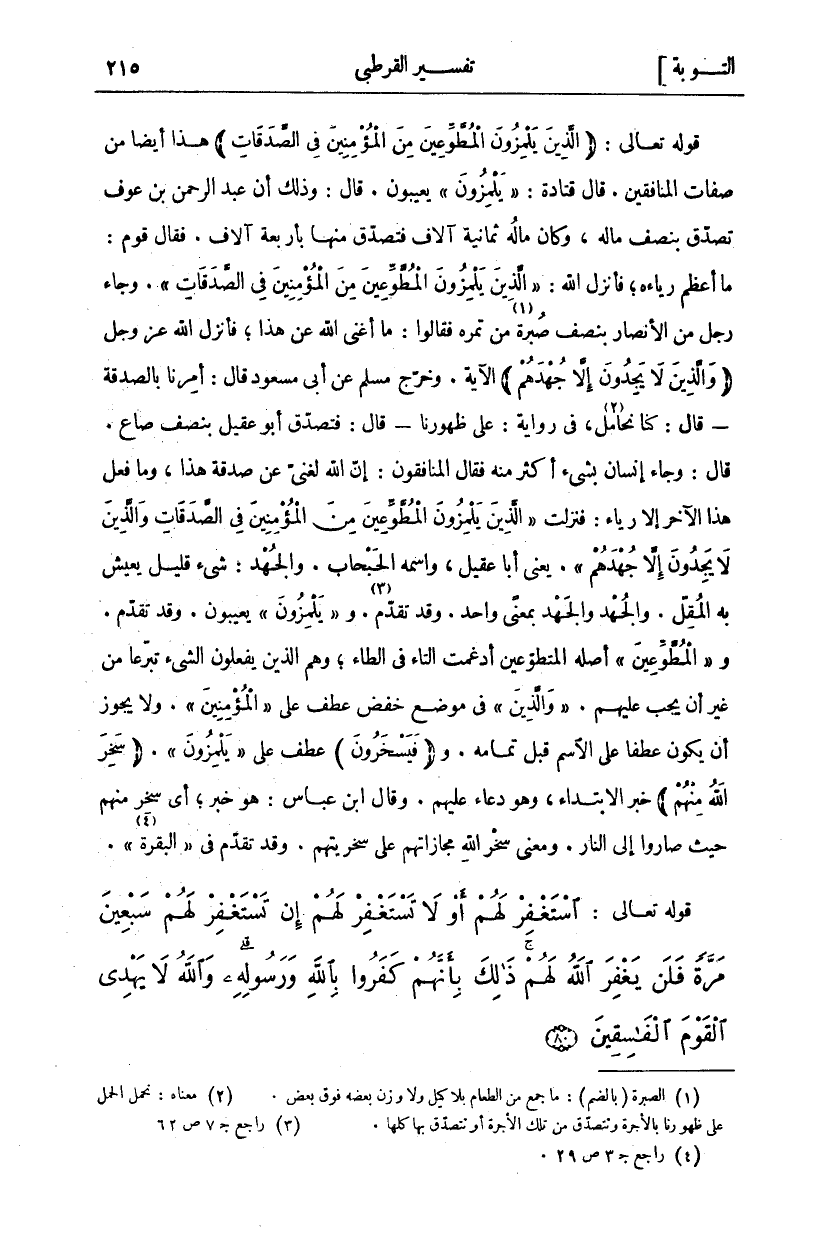 التوبة ] تفسير القرطبي ٢١٥
قوله تعالى : ﴿ الَّذِينَ يَلْمِزُونَ الْمُطَّوِّعِينَ مِنَ الْمُؤْمِنِينَ فِى الصَّدَقَاتِ ﴾ هذا أيضا من
صفات المنافقين . قال قتادة : « يَلْمِزُونَ » يعيبون . قال : وذلك أن عبد الرحمن بن عوف
تصدّق بنصف ماله ، وكان مالُه ثمانية آلاف فتصدّق منها بأربعة آلاف . فقال قوم :
ما أعظم رياءه؛ فأنزل الله : « الَّذِينَ يَلْمِزُونَ الْمُطَّوِّعِينَ مِنَ الْمُؤْمِنِينَ فِى الصَّدَقَاتِ » . وجاء
رجل من الأنصار بنصف صُبرة (١) من تمره فقالوا : ما أغنى الله عن هذا ؛ فأنزل الله عز وجل
﴿ وَالَّذِينَ لَا يَجِدُونَ إِلَّا جُهْدَهُمْ ﴾ الآية . وخرّج مسلم عن أبى مسعود قال : أمِرنا بالصدقة
— قال : كنا نحامل (٢)، فى رواية : على ظهورنا — قال : فتصدّق أبو عقيل بنصف صاع .
قال : وجاء إنسان بشىء أكثر منه فقال المنافقون : إنّ الله لغنىّ عن صدقة هذا ، وما فعل
هذا الآخر إلا رياء : فنزلت « الَّذِينَ يَلْمِزُونَ الْمُطَّوِّعِينَ مِنَ الْمُؤْمِنِينَ فِى الصَّدَقَاتِ وَالَّذِينَ
لَا يَجِدُونَ إِلَّا جُهْدَهُمْ » . يعنى أبا عقيل ، واسمه الحَبْحاب . والجُهْد : شىء قليل يعيش
به المُقِلّ . والجُهْد والجَهْد بمعنًى واحد . وقد تقدّم (٣) . و « يَلْمِزُونَ » يعيبون . وقد تقدّم .
و « الْمُطَّوِّعِينَ » أصله المتطوّعين أدغمت التاء فى الطاء ؛ وهم الذين يفعلون الشىء تبرّعا من
غير أن يجب عليهم . « وَالَّذِينَ » فى موضع خفض عطف على « الْمُؤْمِنِينَ » . ولا يجوز
أن يكون عطفا على الاسم قبل تمامه . و ﴿ فَيَسْخَرُونَ ﴾ عطف على « يَلْمِزُونَ » . ﴿ سَخِرَ
اللهُ مِنْهُمْ ﴾ خبر الابتداء ، وهو دعاء عليهم . وقال ابن عباس : هو خبر ؛ أى سخِر منهم
حيث صاروا إلى النار . ومعنى سخْر اللهِ مجازاتهم على سخريتهم . وقد تقدّم فى « البقرة (٤) » .
قوله تعالى : ٱسْتَغْفِرْ لَهُمْ أَوْ لَا تَسْتَغْفِرْ لَهُمْ إِن تَسْتَغْفِرْ لَهُمْ سَبْعِينَ
مَرَّةً فَلَن يَغْفِرَ ٱللَّهُ لَهُمْ ۚ ذَٰلِكَ بِأَنَّهُمْ كَفَرُوا بِٱللَّهِ وَرَسُولِهِۦ ۗ وَٱللَّهُ لَا يَهْدِى
ٱلْقَوْمَ ٱلْفَٰسِقِينَ ﴿٨٠﴾
(١) الصبرة (بالضم) : ما جمع من الطعام بلا كيل ولا وزن بعضه فوق بعض . (٢) معناه : نحمل الحمل
على ظهورنا بالأجرة ونتصدّق من تلك الأجرة أو نتصدّق بها كلها . (٣) راجع جـ ٧ ص ٦٢
(٤) راجع جـ ٣ ص ٢٩ .